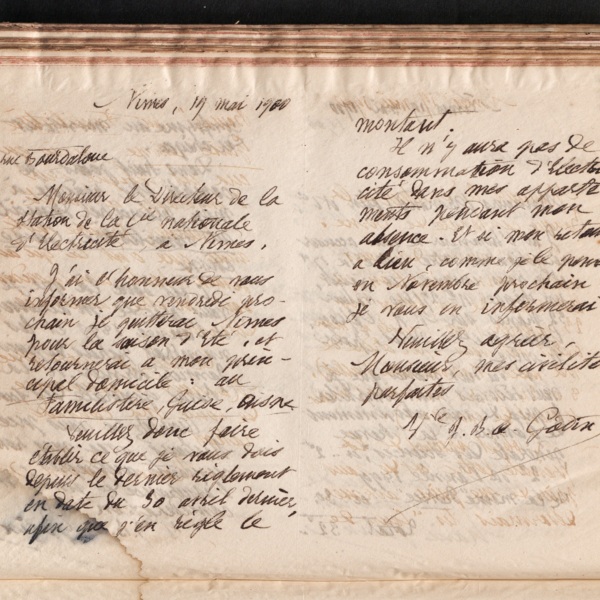 Nimes, 19 mai 1900
rue Bourdaloue
Monsieur le Directeur de la
Station de la Cie nationale
d'Electricité à Nimes,
J'ai l'honneur de vous
informer que vendredi pro-
chain je quitterai Nimes
pour la saison d'Eté, et
retournerai à mon prin-
cipal domicile : au
Familistère, Guise, Aisne
Veuillez donc faire
établir ce que je vous dois
depuis le dernier règlement
en date du 30 avril dernier,
afin que j'en règle le
montant.
Il n'y aura pas de
consommation d'Electri
cité dans mes apparte
ments pendant mon
absence. Et si mon retour
a lieu, comme je le pense
en Novembre prochain
je vous en informerai
Veuillez agréer,
Monsieur, mes civilités
parfaites
Vve J. B. A. Godin